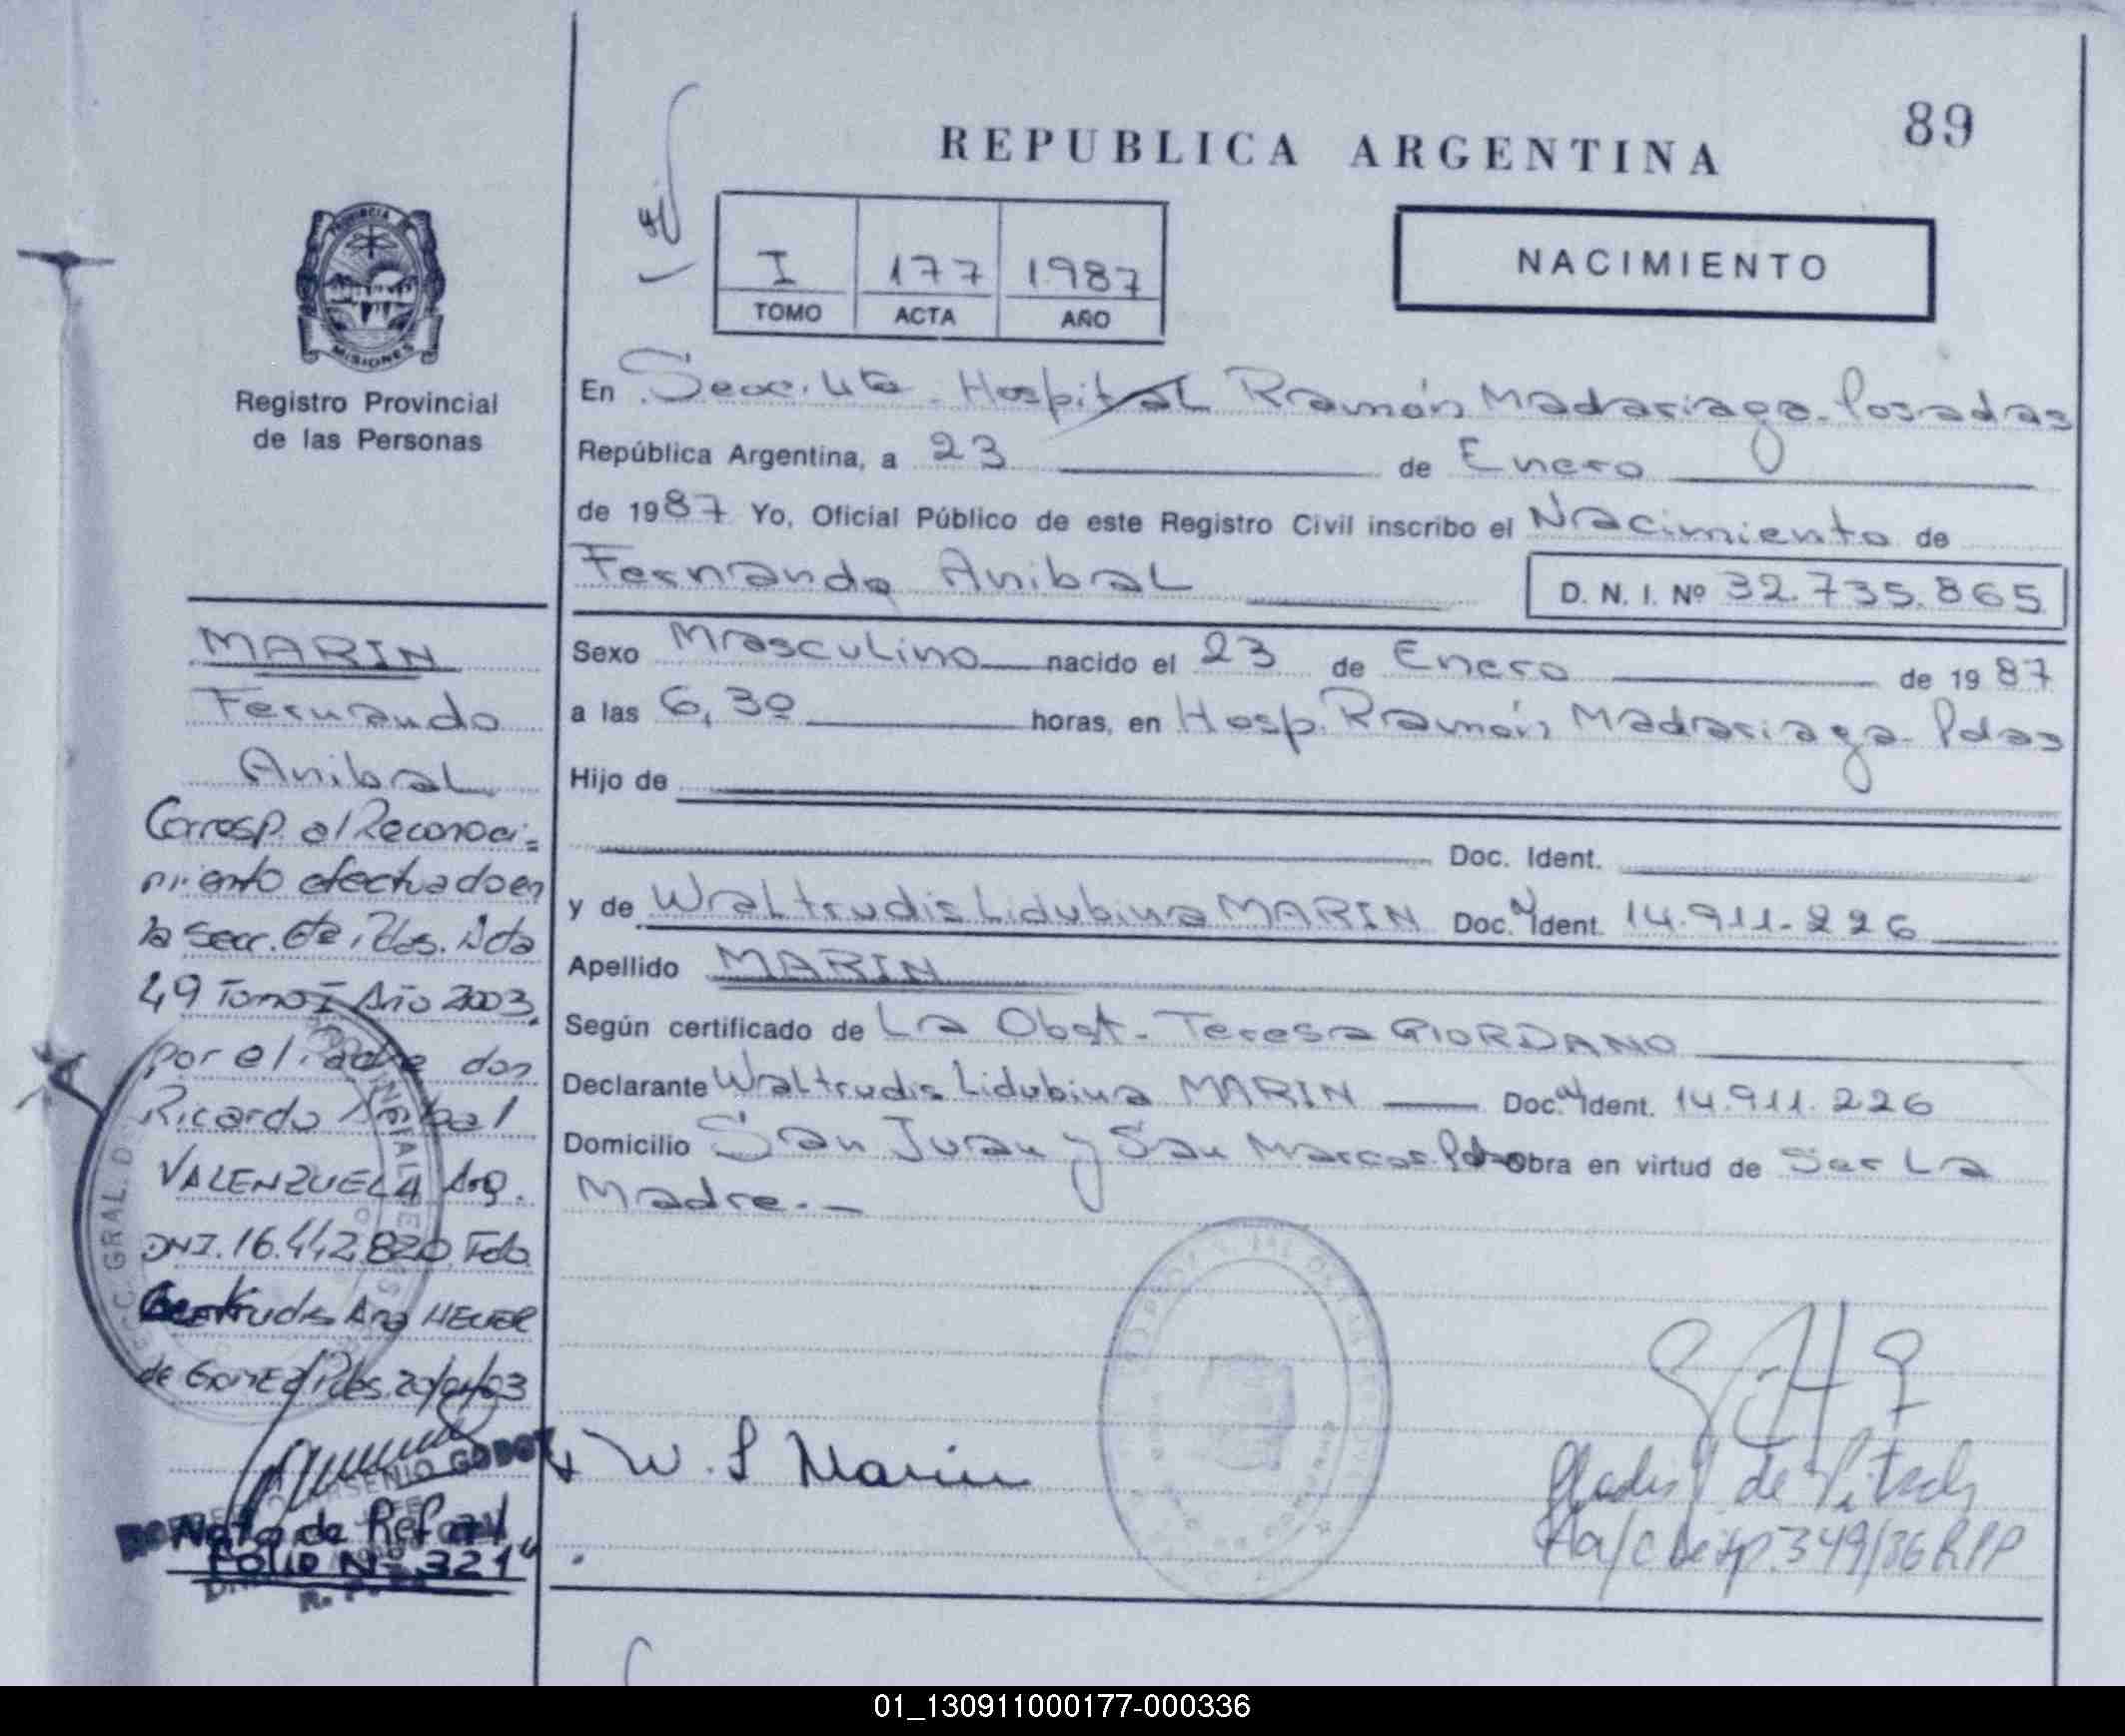 89
REPUBLICA ARGENTINA
I 177 1987
TOMO ACTA AÑO
NACIMIENTO
PROVINCIA DE
MISIONES
Registro Provincial
de las Personas
En Secc. 4ta - Hospital Ramón Madariaga - Posadas
República Argentina, a 23 de Enero
de 1987 Yo, Oficial Público de este Registro Civil inscribo el Nacimiento de
Fernando Anibal
D. N. I. Nº 32.735.865
Sexo Masculino nacido el 23 de Enero de 1987
a las 6,30 horas, en Hosp. Ramón Madariaga - Pdas
Hijo de
Doc. Ident.
y de Waltrudis Lidubina MARIN Doc. Ident. 14.911.226
Apellido MARIN
Según certificado de La Obst. Teresa GIORDANO
Declarante Waltrudis Lidubina MARIN Doc. Ident. 14.911.226
Domicilio San Juan y San Marcos Pdas Obra en virtud de Ser La
Madre.-
W. L Marin
MARIN
Fernando
Anibal
Corresp. al Reconoci=
miento efectuado en
la Secc. 6ta, Pdas. Acta
49 Tomo I Año 2003,
por el padre don
Ricardo Anibal
VALENZUELA Arg.
DNI. 16.442.820, Fdo.
Gertrudis Ana
de GOMEZ Pdas.
GODOY
Nota de Ref. al
Folio Nº 321
01_130911000177-000336